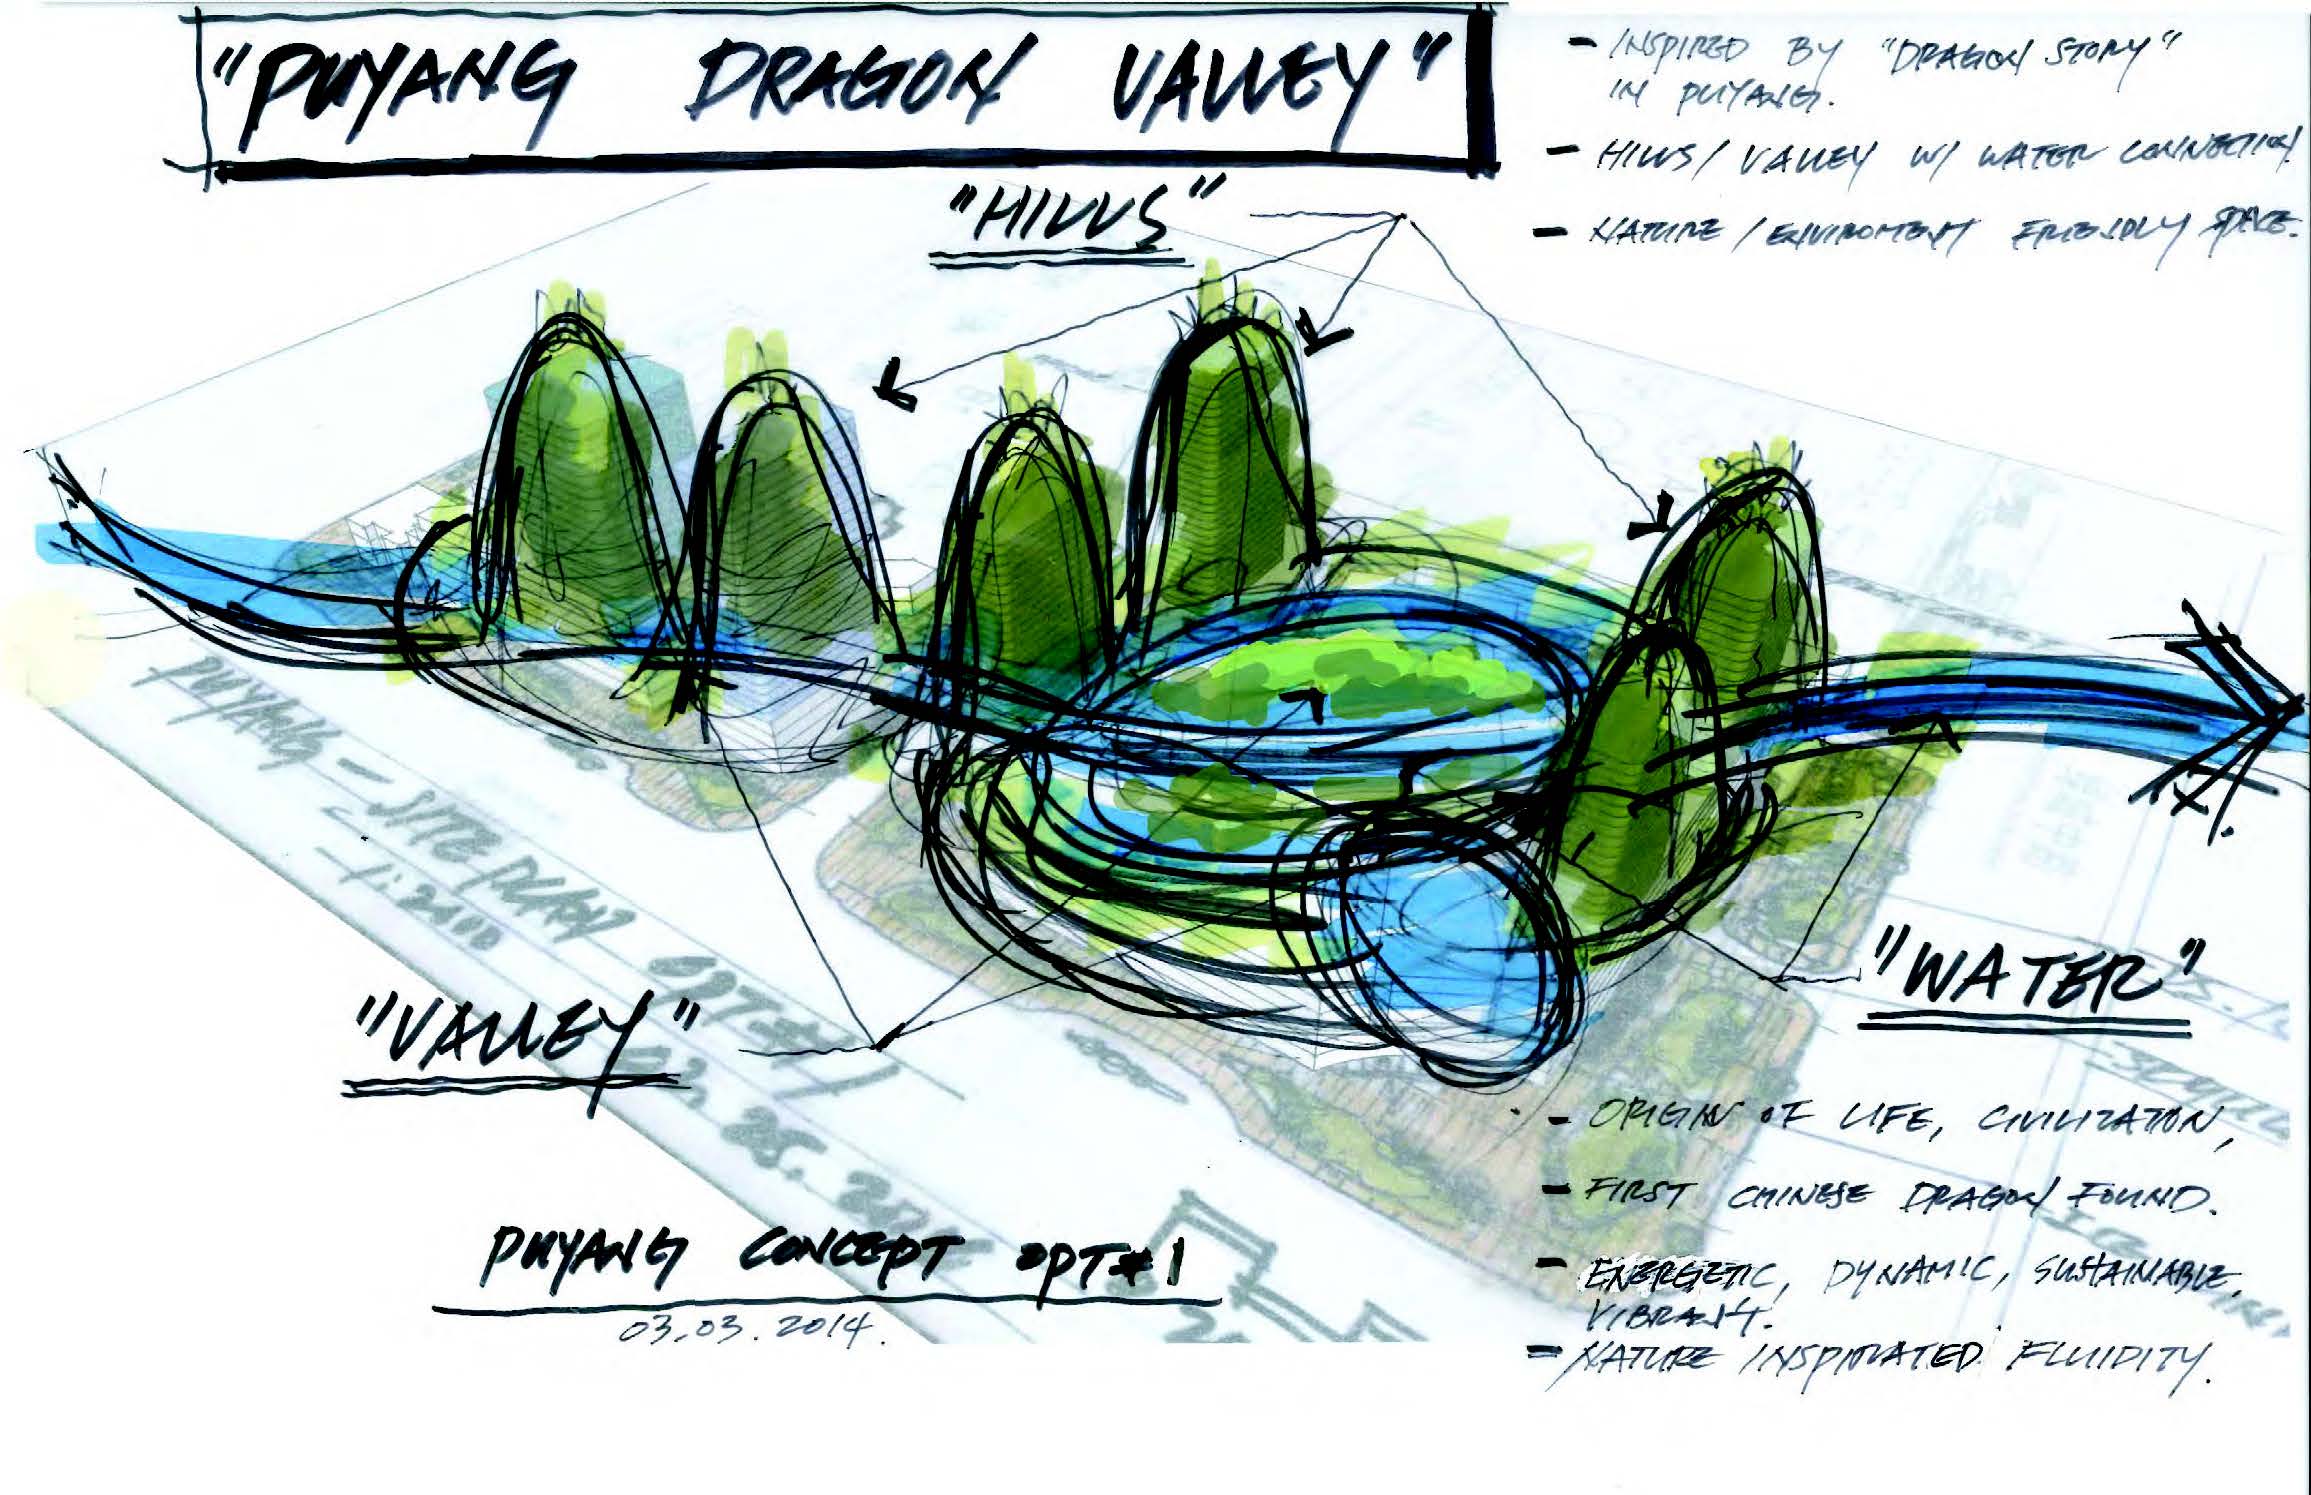 "PUYANG DRAGON VALLEY"
- INSPIRED BY "DRAGON STORY"
IN PUYANG.
- HILLS / VALLEY W/ WATER CONNECTION.
- NATURE / ENVIROMENT FRIENDLY SPACE.
"HILLS"
PUYANG - SITE PLAN OPT#1
1:2000
"VALLEY"
"WATER"
- ORIGIN OF LIFE, CIVILIZATION,
- FIRST CHINESE DRAGON FOUND.
- ENERGETIC, DYNAMIC, SUSTAINABLE,
VIBRANT.
- NATURE INSPIRATED FLUIDITY.
PUYANG CONCEPT OPT#1
03.03.2014.